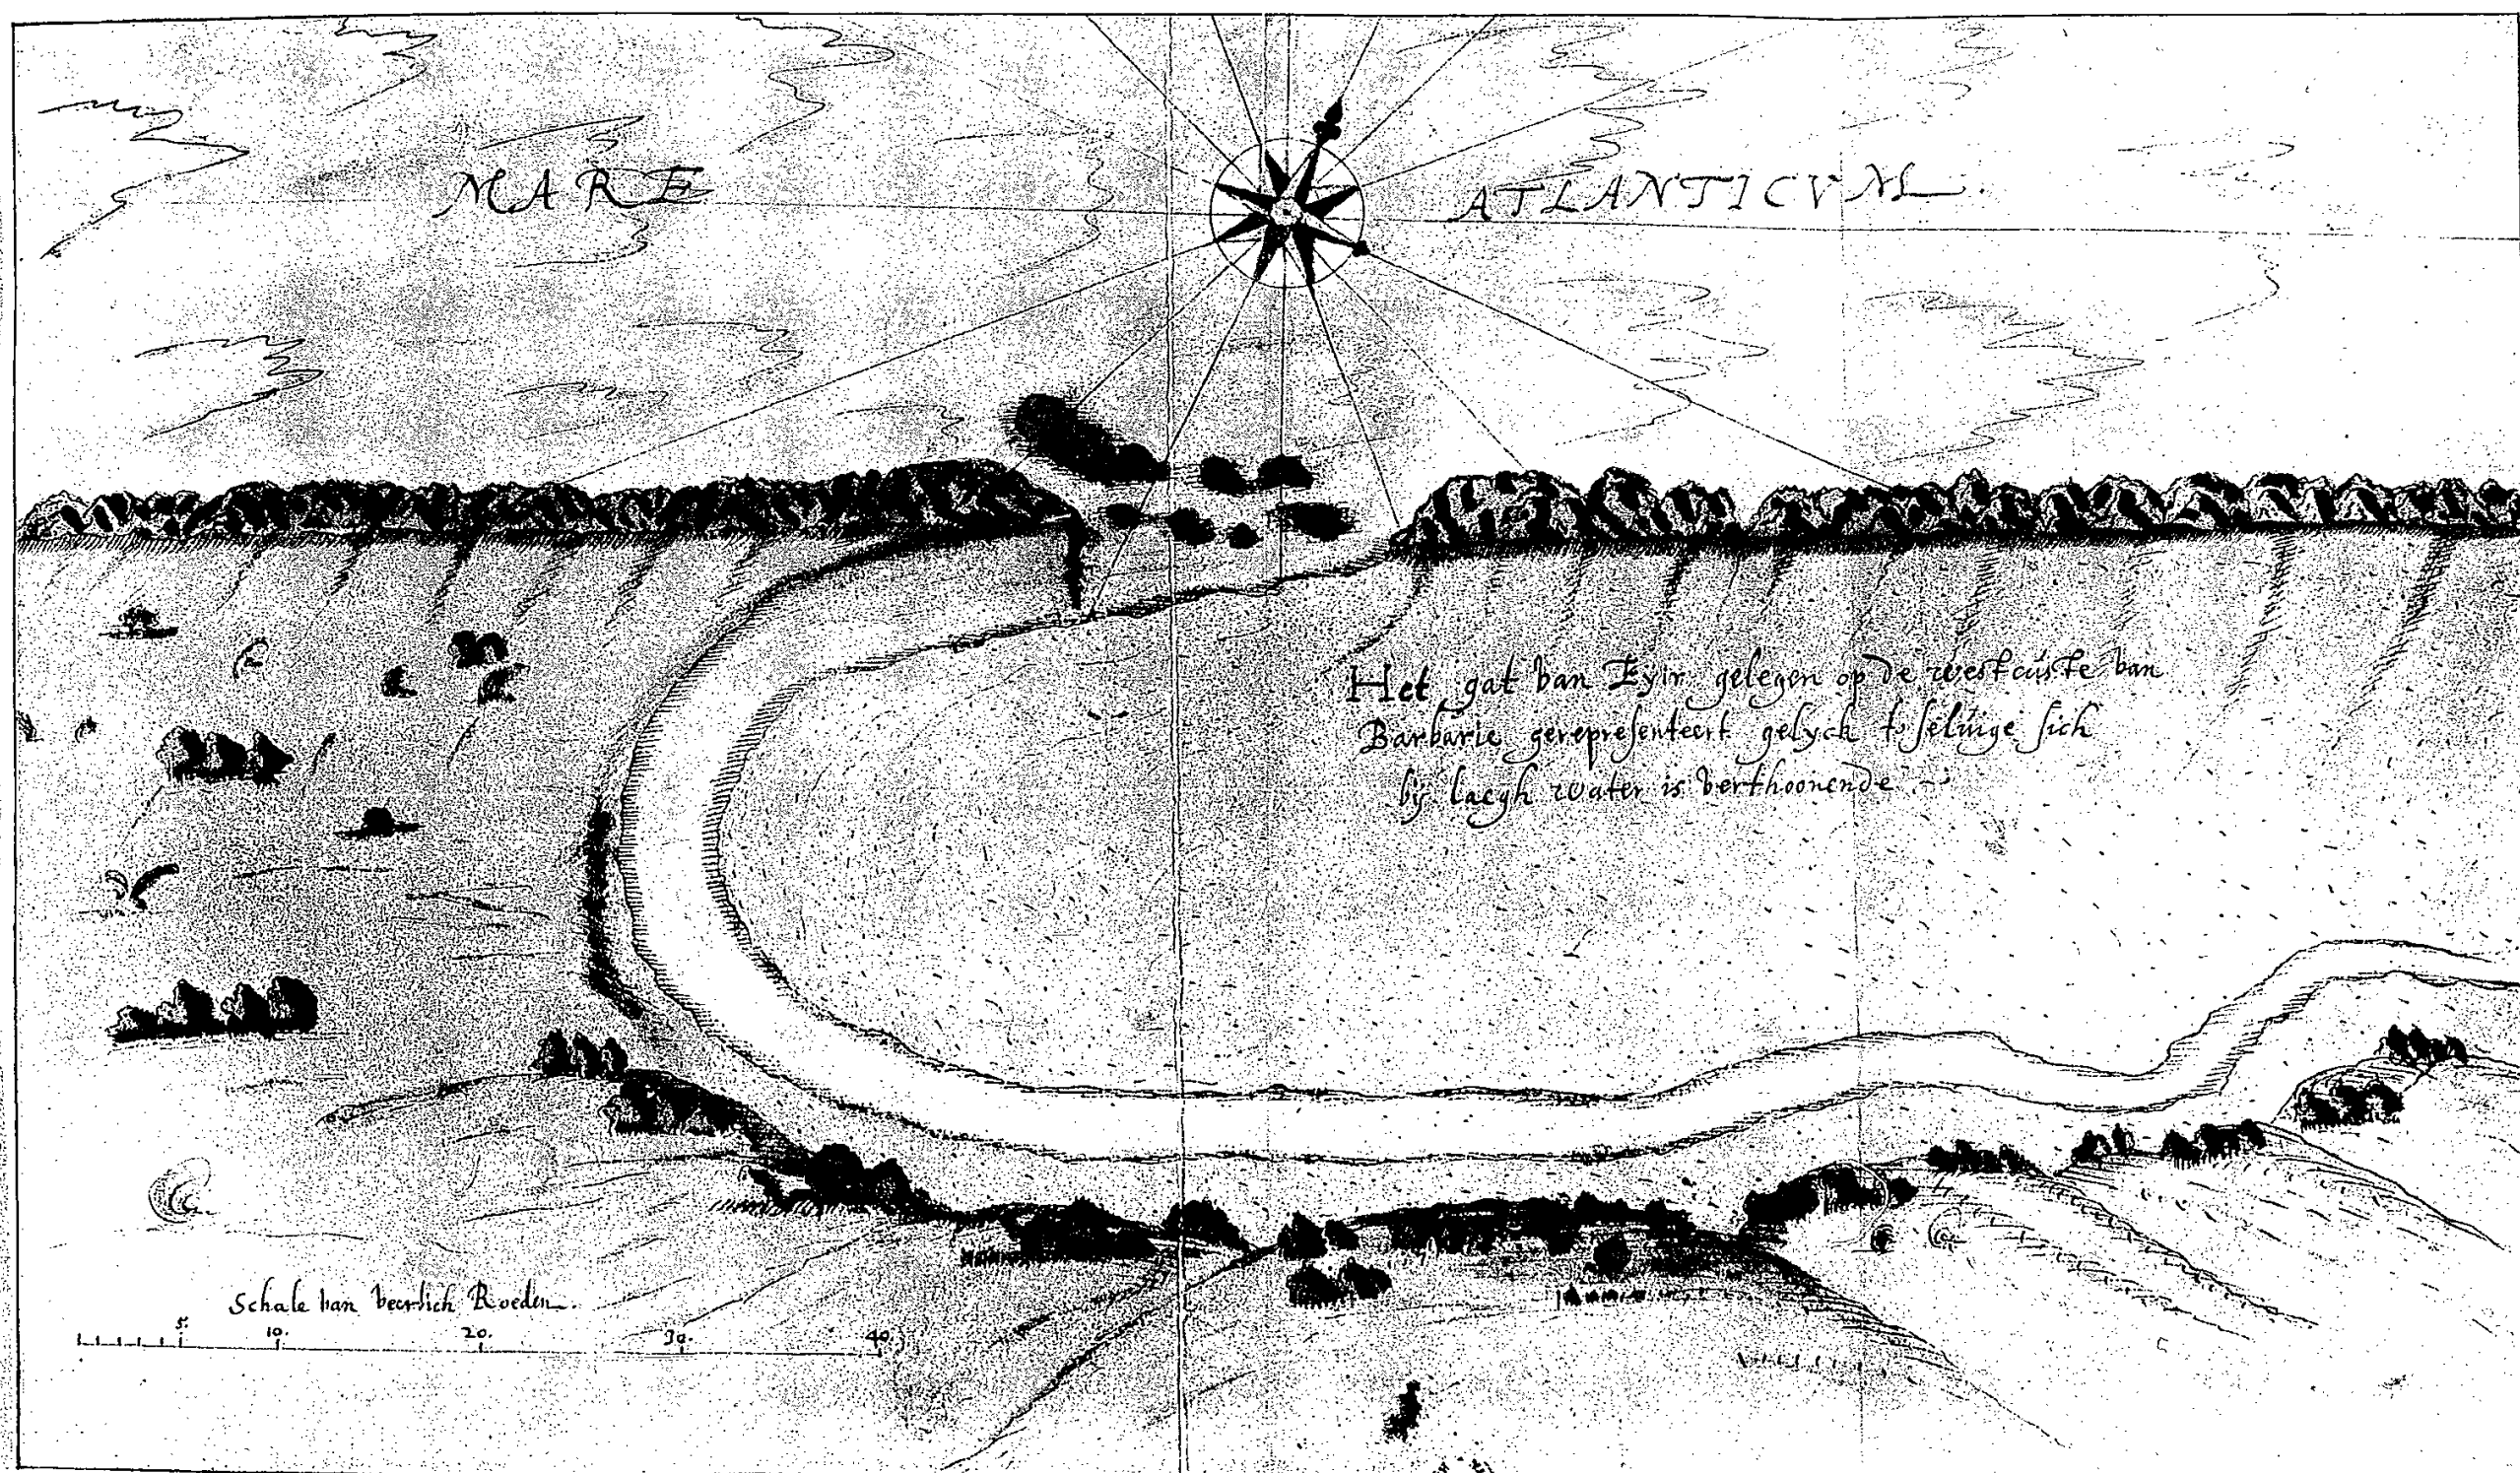 MARE ATLANTICVM.
Het gat van Eyir gelegen op de westcúste van
Barbarie gerepresenteert gelyck t'selúige sich
bij laegh water is verthoonende.
Schale van veertich Roeden.
5. 10. 20. 30. 40.